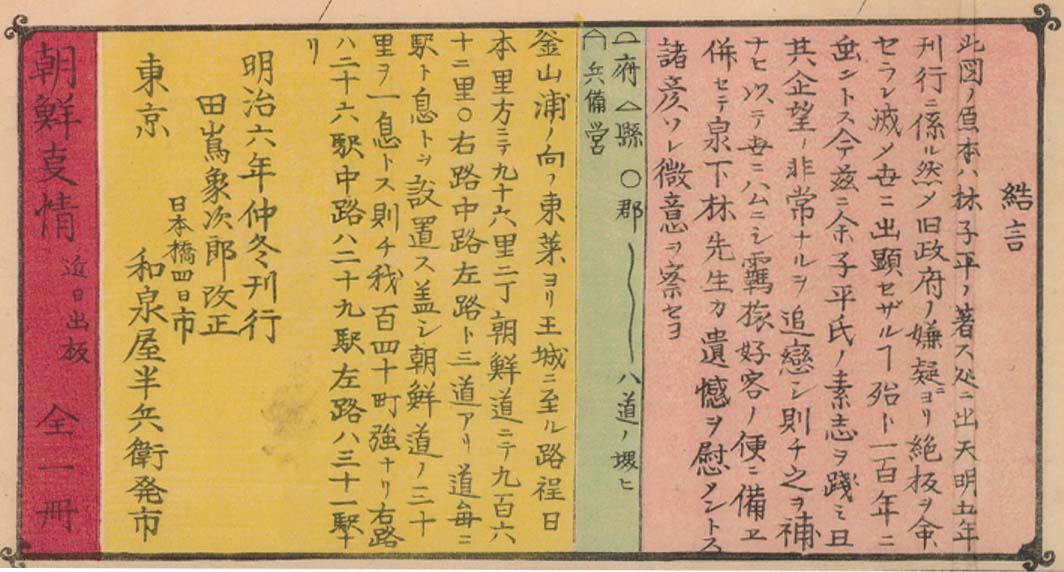 結言
此図ノ原本ハ林子平ノ著ス処ニ出天明五年
刊行ニ係ル然メ旧政府ノ嫌疑ニヨリ絶板ヲ命
セラレ滅メ世ニ出顕セザルヿ殆ト一百年ニ
垂ントス今茲ニ余子平氏ノ素志ヲ踐ミ且
其企望ノ非常ナルヲ追戀シ則チ之ヲ補
ナヒ以テ世ニハムニシ羈旅好客ノ便ニ備ヱ
併セテ泉下林先生カ遺憾ヲ慰メントス
諸彦ソレ微意ヲ察セヨ
府 縣 〇郡 八道ノ堺ヒ
兵備営
釜山浦ノ向フ東莱ヨリ王城ニ至ル路程日
本里方ニテ九十六里二丁朝鮮道ニテ九百六
十二里〇右路中路左路ト三道アリ道毎ニ
駅ト息トヲ設置ス盖シ朝鮮道ノ三十
里ヲ一息トス則チ我百四十町強ナリ右路
ハ二十六駅中路ハ二十九駅左路ハ三十一駅ナ
リ
明治六年仲冬刊行
田嶌象次郎改正
日本橋四日市
東京 和泉屋半兵衛発市
朝鮮支情 近日出板 全一冊